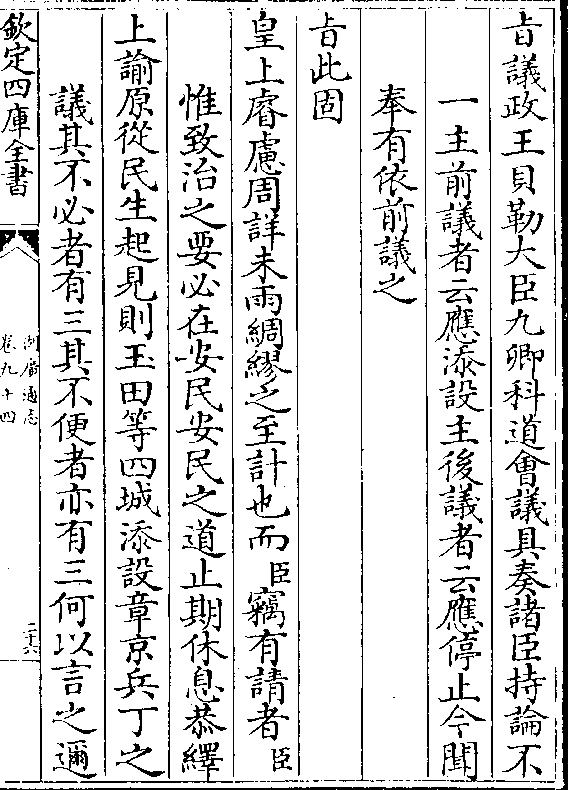 旨議政王貝勒大臣九卿科道會議具奏諸臣持論不
一主前議者云應添設主後議者云應停止今聞
奉有依前議之
旨此固
皇上睿慮周詳未雨綢繆之至計也而臣竊有請者臣
惟致治之要必在安民安民之道止期休息恭繹
上諭原從民生起見則玉田等四城添設章京兵丁之
議其不必者有三其不便者亦有三何以言之邇
欽定四庫全書
湖廣通志
卷九十四
二十六